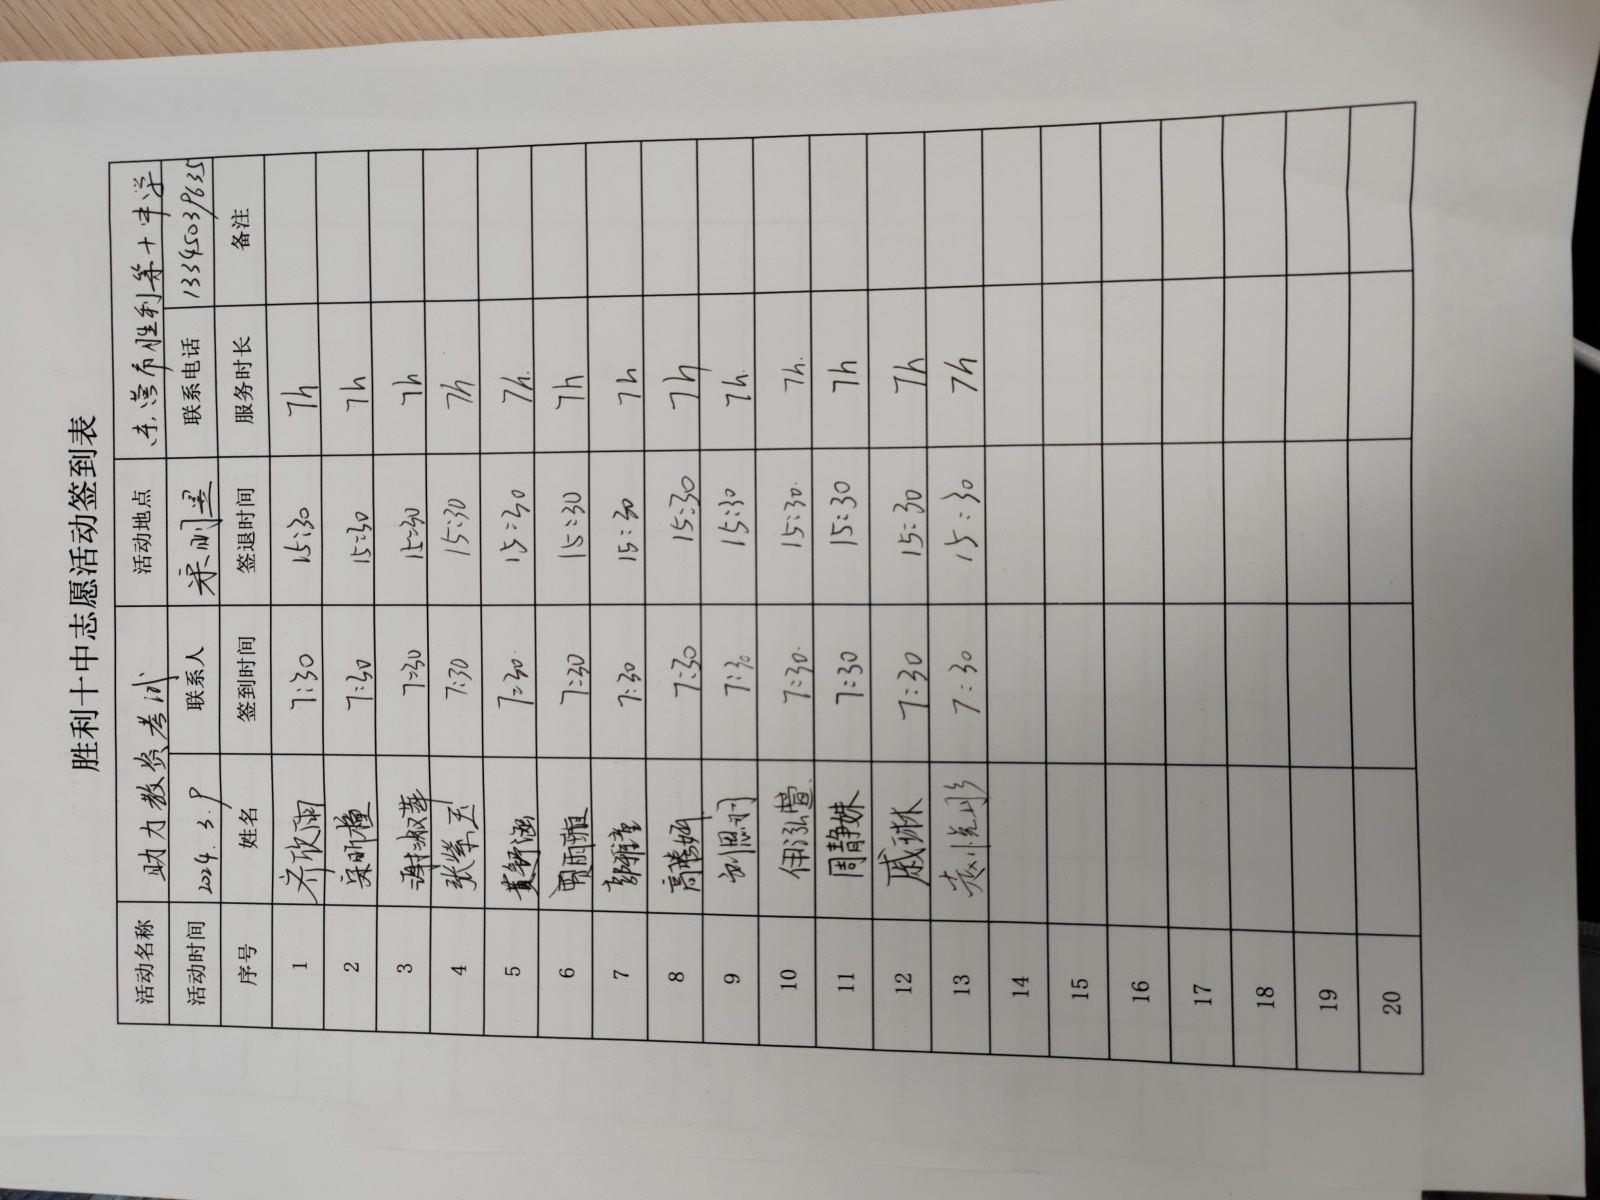 胜利十中志愿活动签到表
活动名称 助力教资考试 活动地点 东营市胜利第十中学
活动时间 2024.3.9 联系人 联系电话 13345039635
序号 姓名 签到时间 签退时间 服务时长 备注
1 齐欣雨 7:30 15:30 7h
2 7:30 15:30 7h
3 谢淑萍 7:30 15:30 7h
4 张紫玉 7:30 15:30 7h
5 黄舒涵 7:30 15:30 7h
6 贾雨菲 7:30 15:30 7h
7 7:30 15:30 7h
8 高腾妍 7:30 15:30 7h
9 刘思明 7:30 15:30 7h.
10 伊泓萱 7:30. 15:30. 7h.
11 周静姝 7:30 15:30 7h
12 戚琳 7:30 15:30 7h
13 7:30 15:30 7h
14
15
16
17
18
19
20